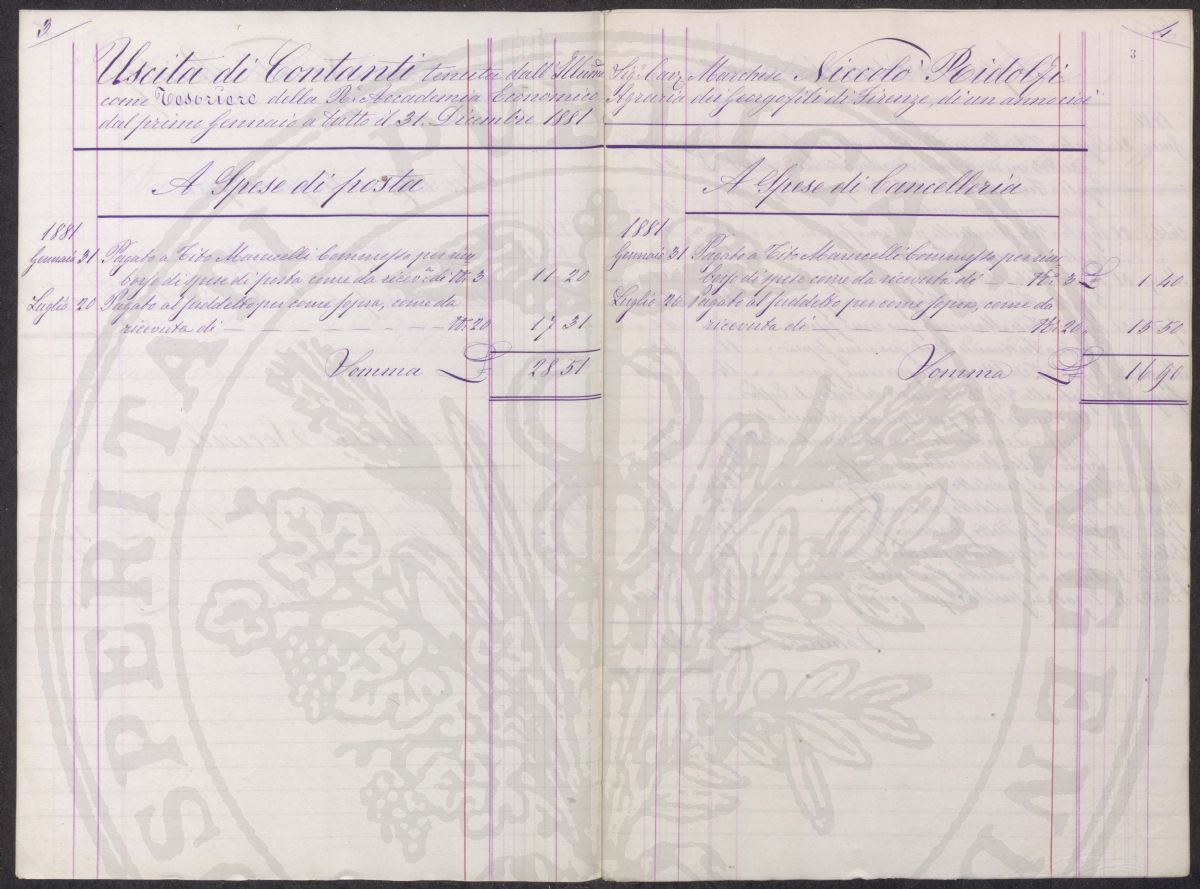 3
Uscita di Contanti tenuta dall' Illumo
come Tesoriere della R. Accademia Economico
dal primo Gennaio a tutto il 31. Dicembre 1881
A Spese di posta
1881
Gennaio 31 Pagato a Tito Marucelli Commesso per rim
borso di spese di posta come da ricev.a di No. 3 11 20
Luglio 20 Pagato al suddetto per come sopra, come da
ricevuta di — — — — — — No. 20 17 31
Somma £ 28 51
4
3
Sigr. Cav. Marchese Niccolò Ridolfi
Agraria dei Georgofili di Firenze, di un anno cioè
A Spese di Cancelleria
1881
Gennaio 31 Pagato a Tito Marucelli Commesso per rim
borso di spese come da ricevuta di — — No. 3 £ 1 40
Luglio 20 Pagato al suddetto per come sopra, come da
ricevuta di — — — — — No. 20 15 50
Somma £ 16 90
PROSPERITA
AUGENDA